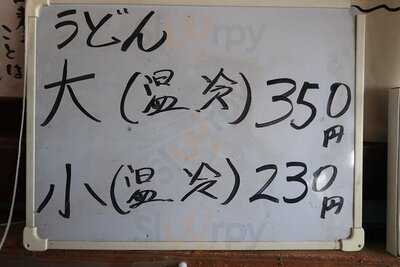 うどん
大(温冷)350円
小(温冷)230円
ことは